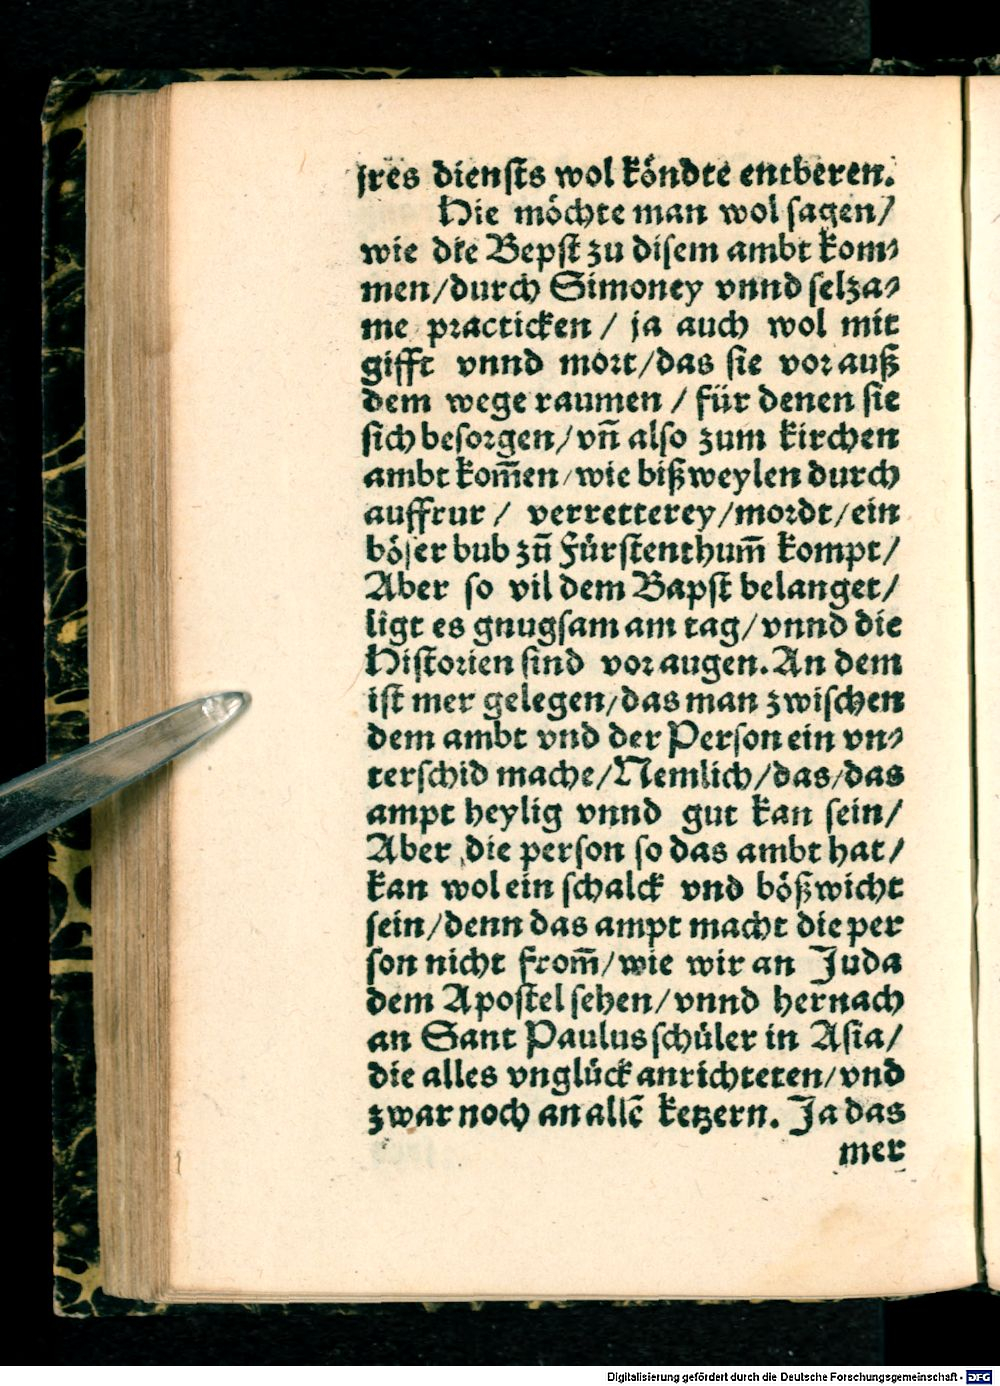 jres diensts wol köndte entberen.
Hie möchte man wol sagen/
wie die Bepst zu disem ambt kom⸗
men/durch Simoney vnnd selza⸗
me practicken / ja auch wol mit
gifft vnnd mort/das sie vor auß
dem wege raumen / für denen sie
sich besorgen/vn̄ also zum kirchen
ambt kom̄en/wie bißweylen durch
auffrur / verretterey/mordt/ein
böser bub zū Fürstenthum̄ kompt/
Aber so vil dem Bapst belanget/
ligt es gnugsam am tag/vnnd die
Historien sind vor augen. An dem
ist mer gelegen/das man zwischen
dem ambt vnd der Person ein vn⸗
terschid mache/Nemlich/das/das
ampt heylig vnnd gut kan sein/
Aber die person so das ambt hat/
kan wol ein schalck vnd bößwicht
sein/denn das ampt macht die per
son nicht from̄/wie wir an Juda
dem Apostel sehen/vnnd hernach
an Sant Paulus schüler in Asia/
die alles vnglück anrichteten/vnd
zwar noch an allē ketzern. Ja das
mer
Digitalisierung gefördert durch die Deutsche Forschungsgemeinschaft - DFG